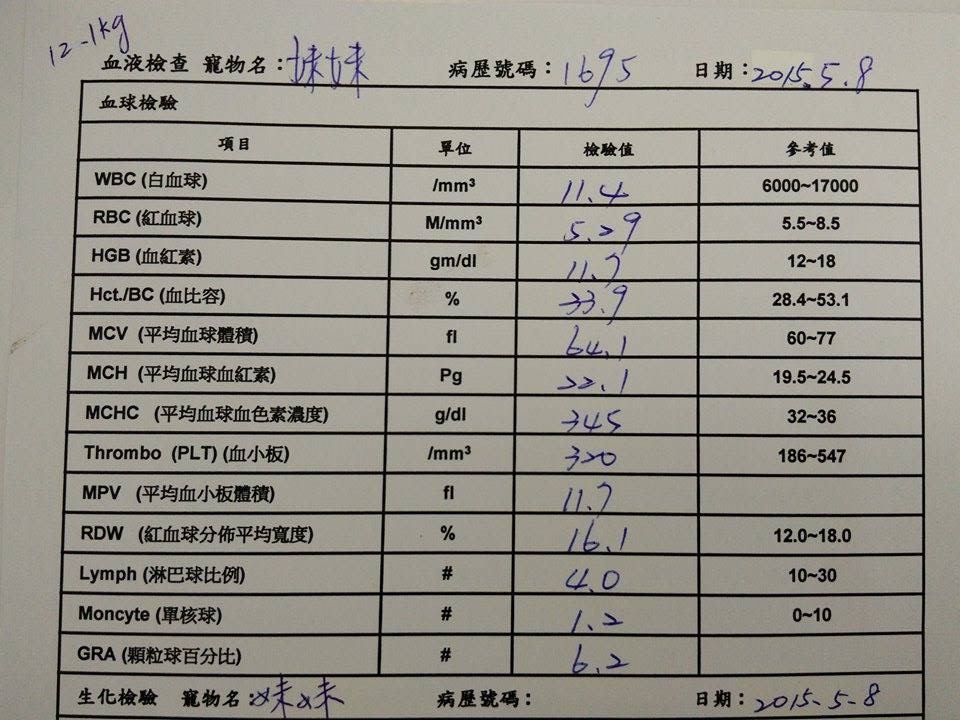 12.1kg
血液檢查 寵物名：妹妹 病歷號碼：1695 日期：2015.5.8
血球檢驗
項目 單位 檢驗值 參考值
WBC (白血球) /mm³ 11.4 6000~17000
RBC (紅血球) M/mm³ 5.29 5.5~8.5
HGB (血紅素) gm/dl 11.7 12~18
Hct./BC (血比容) % 33.9 28.4~53.1
MCV (平均血球體積) fl 64.1 60~77
MCH (平均血球血紅素) Pg 22.1 19.5~24.5
MCHC (平均血球血色素濃度) g/dl 345 32~36
Thrombo (PLT) (血小板) /mm³ 320 186~547
MPV (平均血小板體積) fl 11.7
RDW (紅血球分佈平均寬度) % 16.1 12.0~18.0
Lymph (淋巴球比例) # 4.0 10~30
Moncyte (單核球) # 1.2 0~10
GRA (顆粒球百分比) # 6.2
生化檢驗 寵物名：妹妹 病歷號碼： 日期：2015-5-8